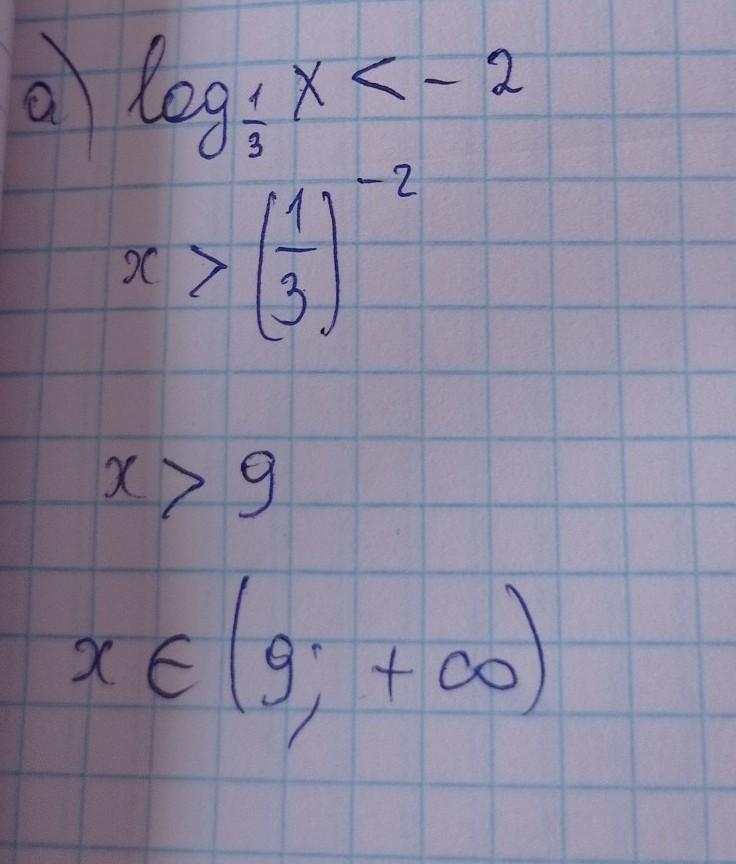 a) log_{1/3} x < - 2
x > (1/3)^{-2}
x > 9
x ∈ (9; + ∞)